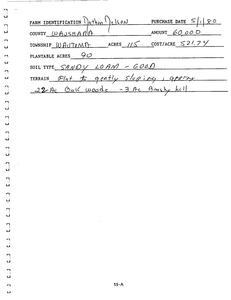 FARM IDENTIFICATION Nathan Nelson PURCHASE DATE 5/1/80
COUNTY WAUSHARA AMOUNT 60,000
TOWNSHIP WAUTOMA ACRES 115 COST/ACRE 521.74
PLANTABLE ACRES 90
SOIL TYPE SANDY LOAM - GOOD
TERRAIN Flat to gently sloping, approx
22 Ac Oak woods - 3 Ac Brushy hill
15-A